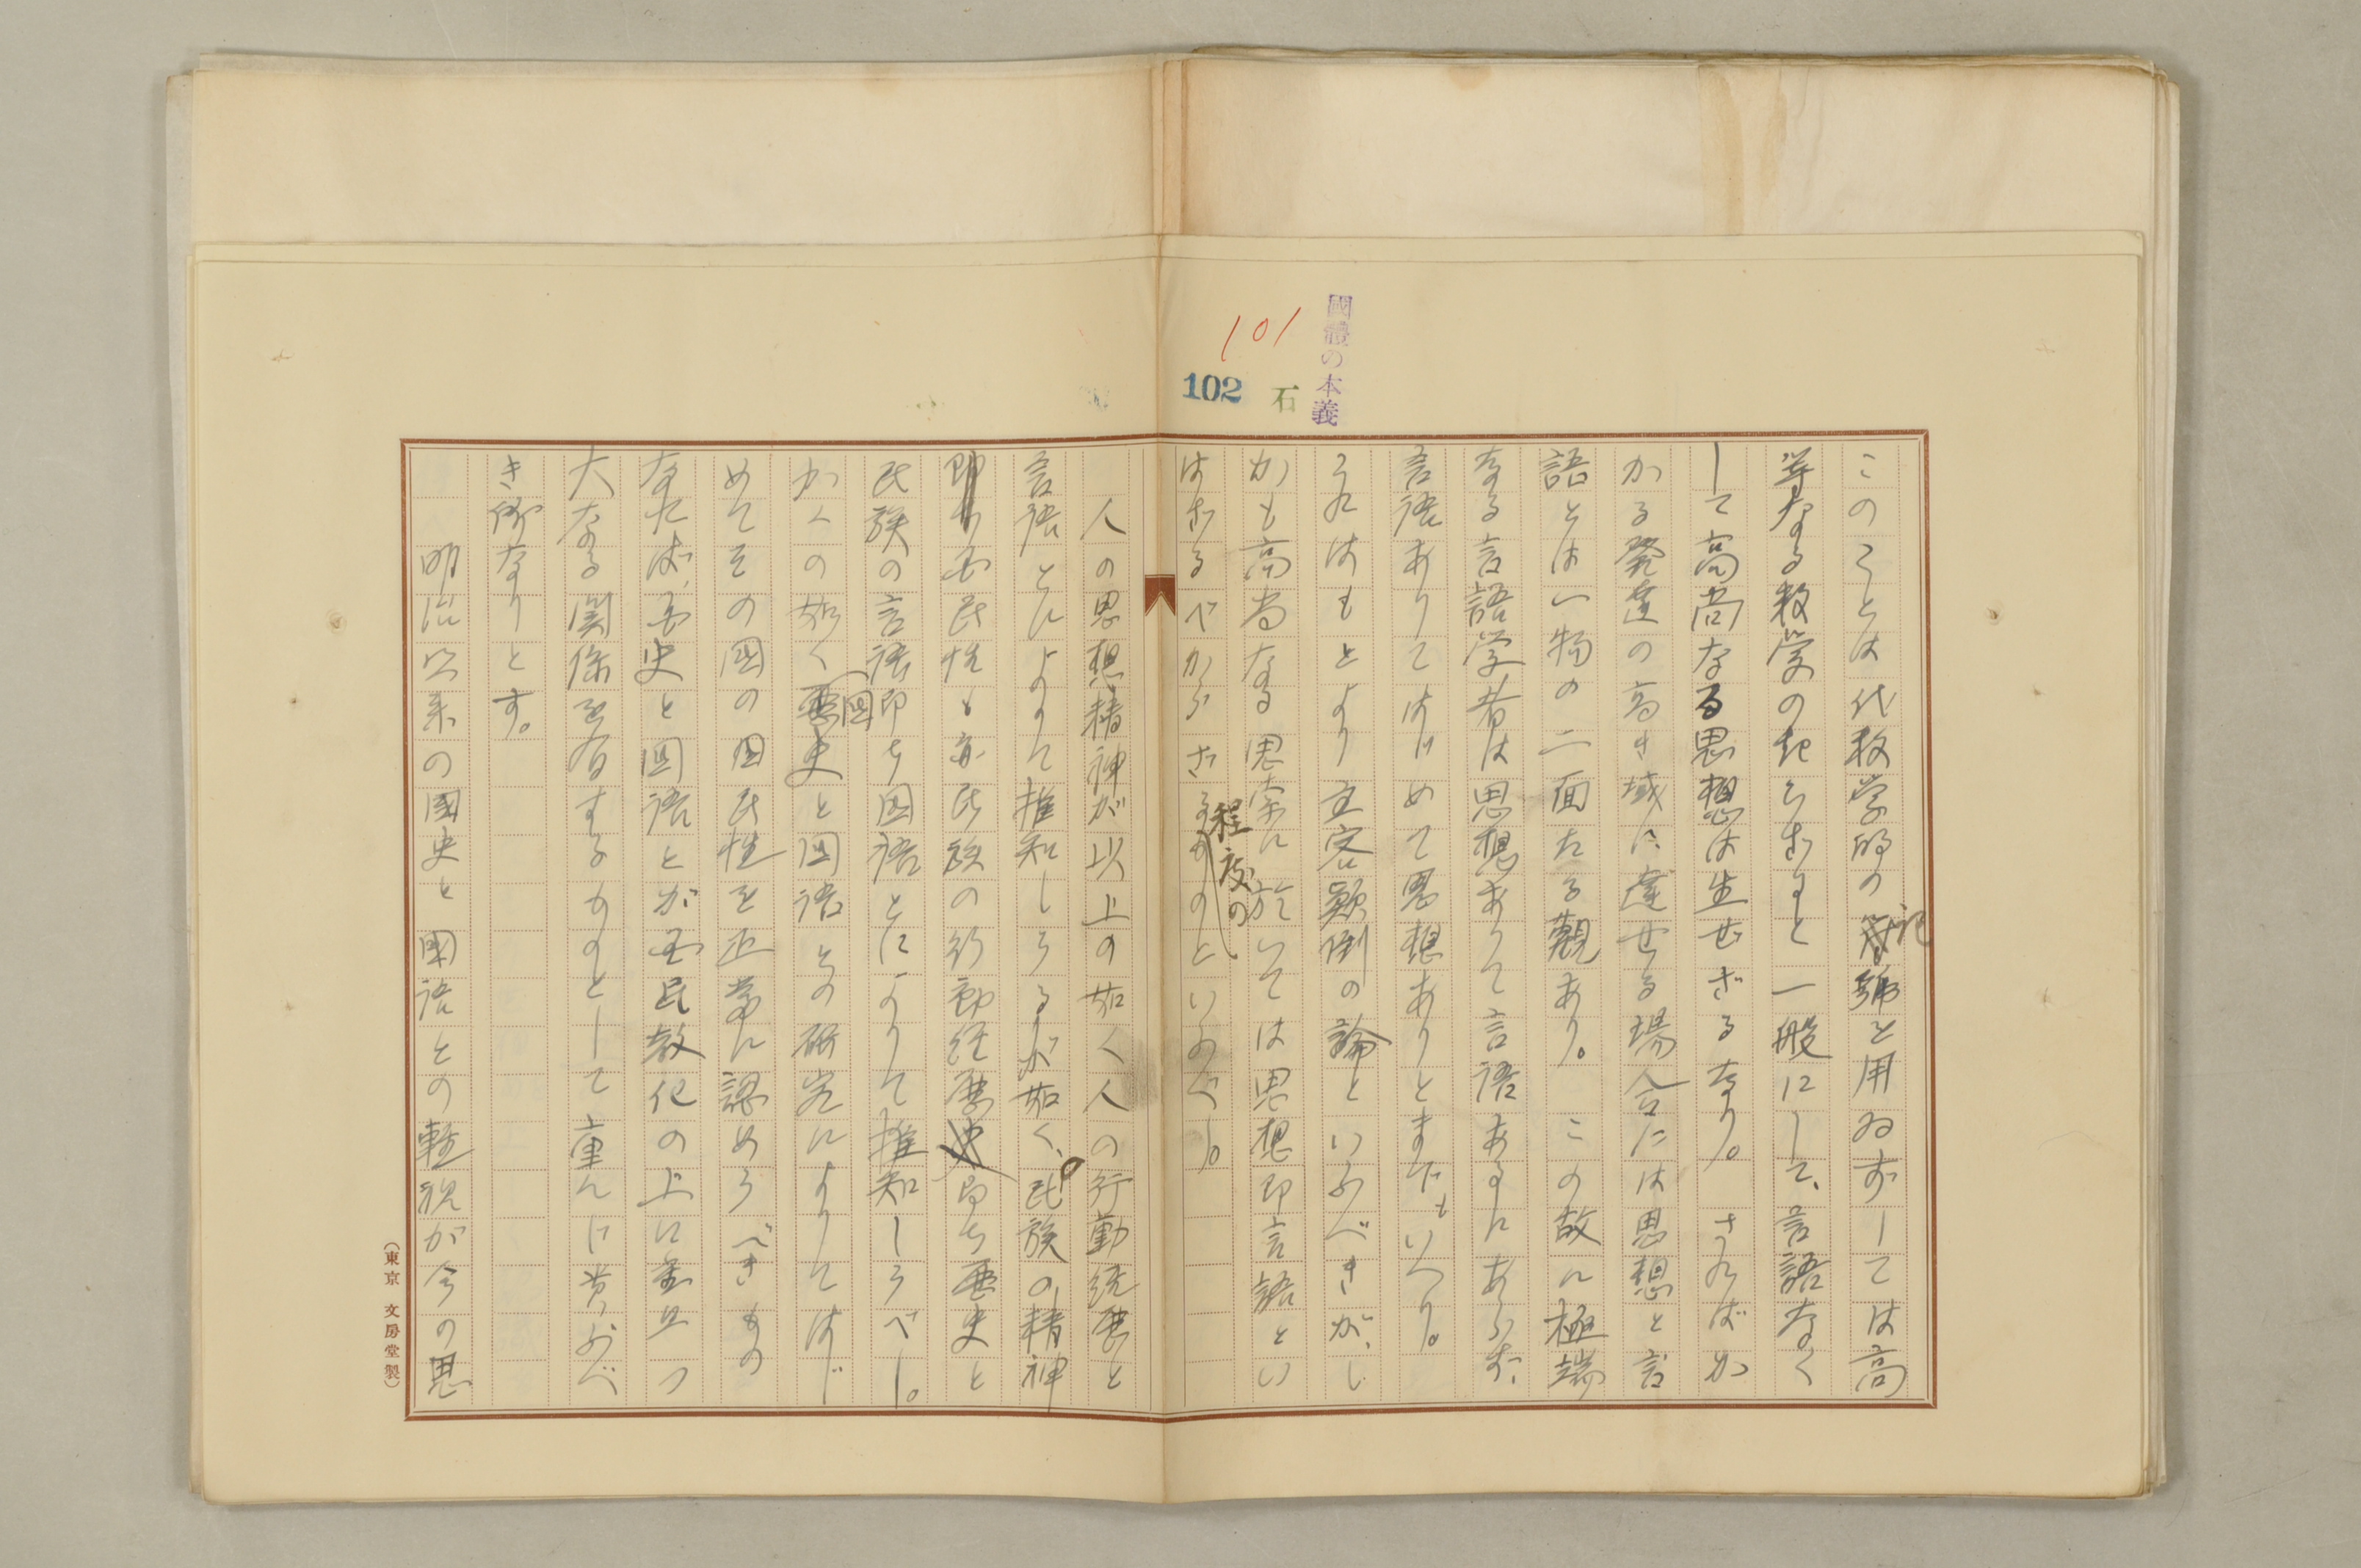 國體の本義
石
101
102
このことは代数学的の記號を用ゐずしては高
等なる数学の起らざると一般にして、言語なく
して高尚なる思想は生ぜざるなり。さればか
かる発達の高き域に達せる場合には思想と言
語とは一物の二面たる觀あり。この故に極端
なる言語学者は思想ありて言語あるにあらず、
言語ありてはじめて思想ありとまでもいへり。
これはもとより主客顚倒の論といふべきが、し
かも高尚なる思索に於いては思想即言語とい
はざるべからざる程度のものといふべし。
人の思想精神が以上の如く人の行動経歴と
言語とによりて推知しうるが如く、民族の精神
即ち国民性も亦民族の行動経歴即ち歴史と
民族の言語即ち国語とによりて推知しうべし。
かくの如く国史と国語との研究によりてはじ
めてその国の国民性を正當に認めうべきもの
なれば、国史と国語とが国民教化の上に至且つ
大なる関係を有するものとして重んじ尚ぶべ
き例なりとす。
明治以来の國史と國語との軽視が今の思
（東京 文房堂製）